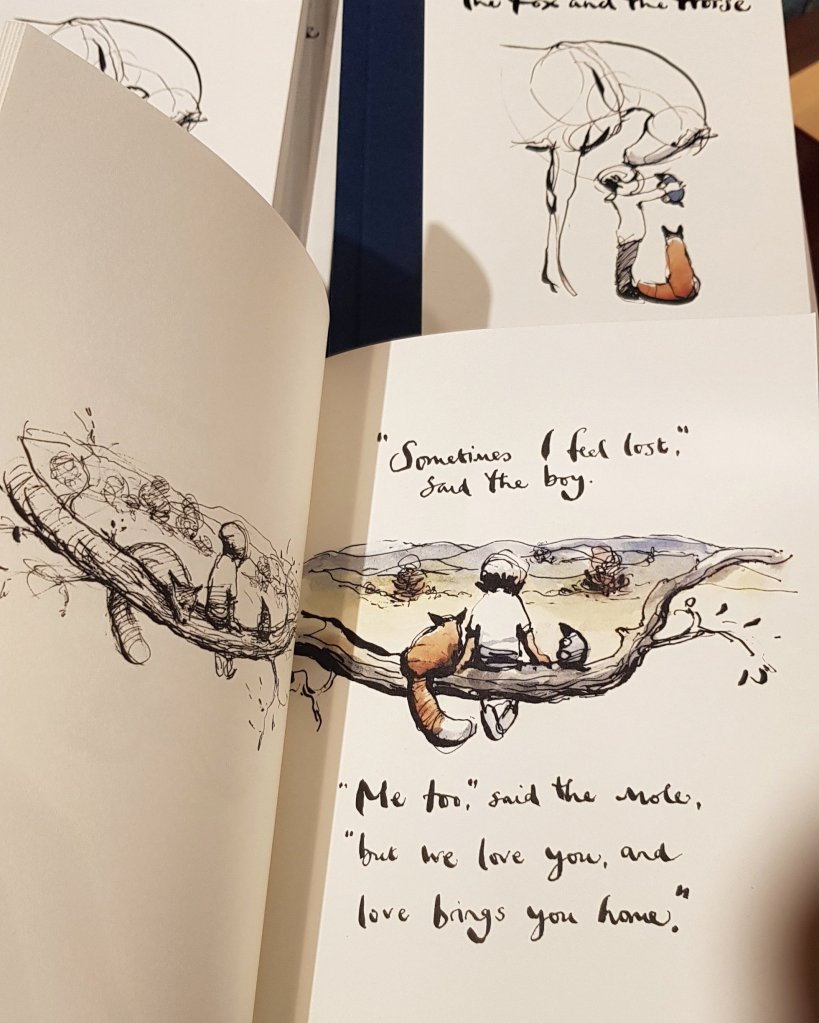 The Fox and the Horse
"Sometimes I feel lost,"
said the boy.
"Me too," said the mole,
"but we love you, and
love brings you home."